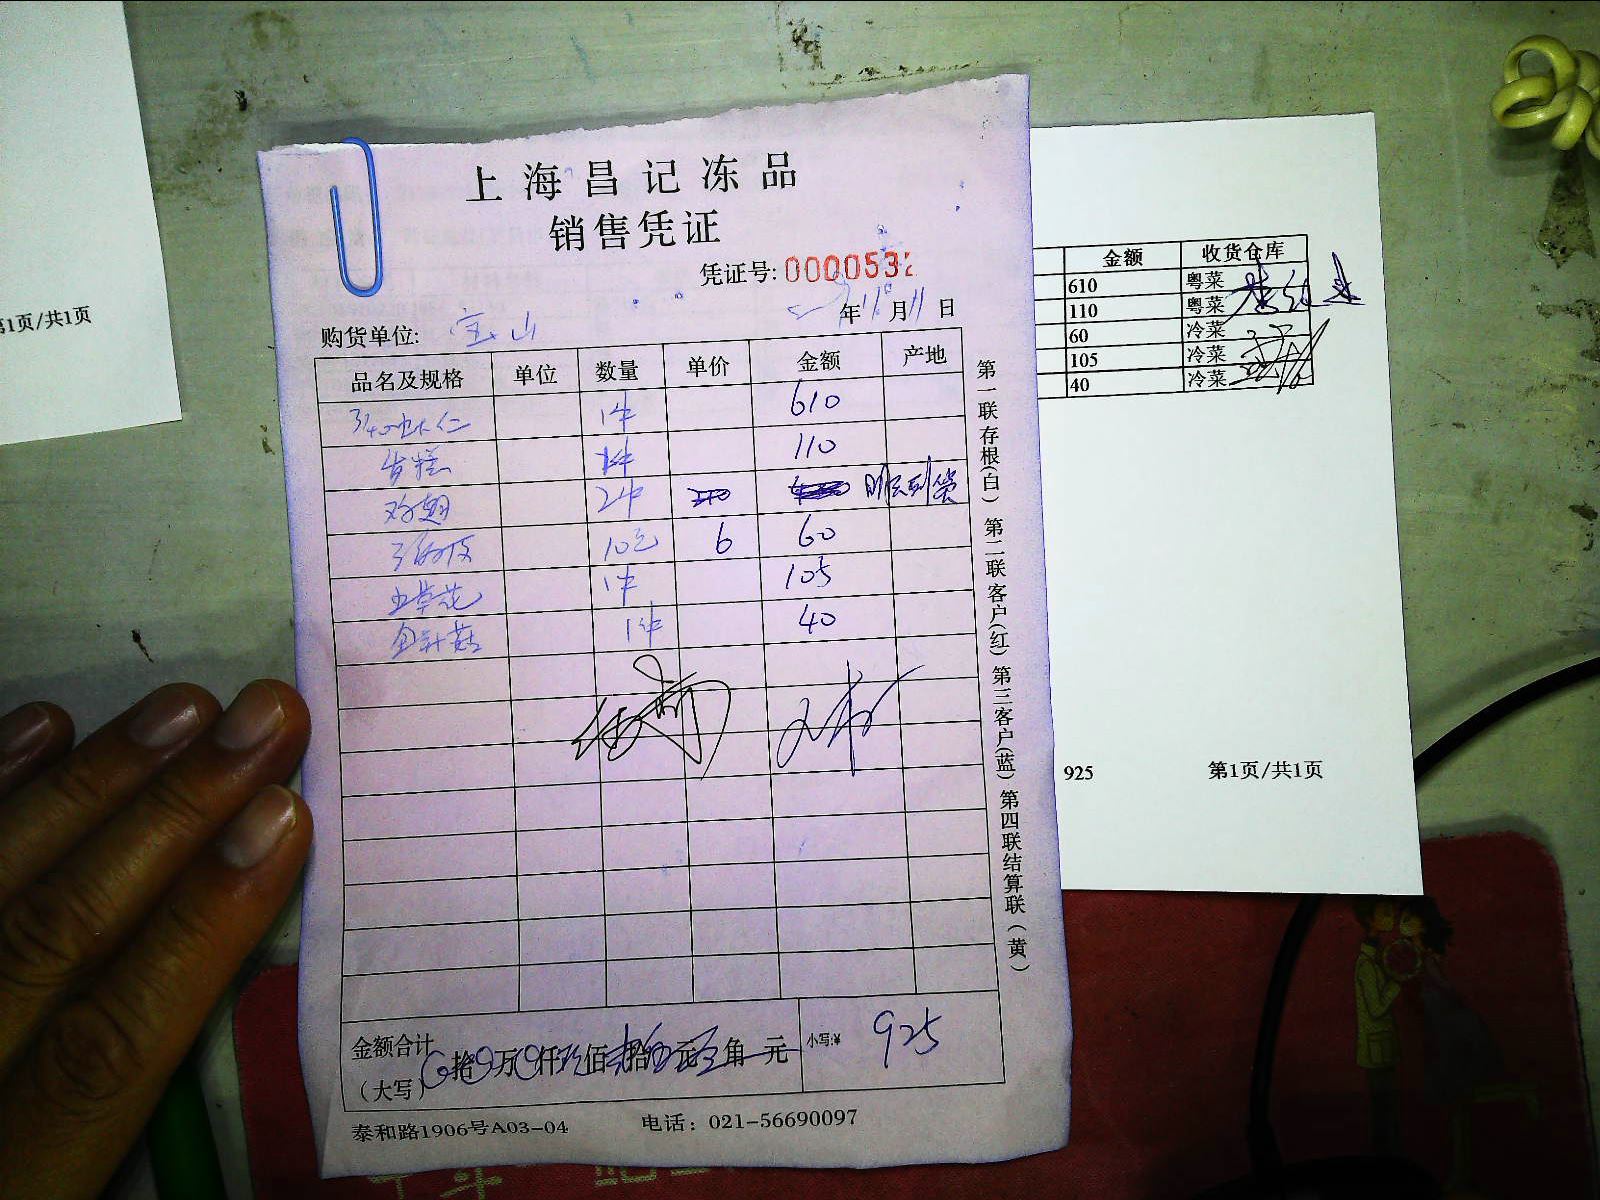 上海昌记冻品
销售凭证
凭证号: 000053
年11月11日
购货单位: 宝山
品名及规格 单位 数量 单价 金额 产地
虾仁 1件 610
发糕 1件 110
鸡翅 2件
10包 6 60
虫草花 1件 105
金针菇 1件 40
金额合计
（大写） 拾 万 仟 玖佰 贰拾 伍元 角 元
小写:¥ 925
泰和路1906号A03-04 电话：021-56690097
第一联存根(白) 第二联客户(红) 第三客户(蓝) 第四联结算联（黄）
金额 收货仓库
610 粤菜
110 粤菜
60 冷菜
105 冷菜
40 冷菜
925 第1页/共1页
第1页/共1页